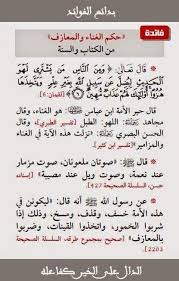 بدائع الفوائد
فائدة
« حكم الغناء والمعازف »
من الكتاب والسنة
قال تعالى: ﴿ وَمِنَ النَّاسِ مَن يَشْتَرِي لَهْوَ
الْحَدِيثِ لِيُضِلَّ عَن سَبِيلِ اللَّهِ بِغَيْرِ عِلْمٍ وَيَتَّخِذَهَا
هُزُوًا أُولَٰئِكَ لَهُمْ عَذَابٌ مُّهِينٌ ﴾ [لقمان: 6]
قال حبر الأمة ابن عباس ـ: هو الغناء، وقال
مجاهد: اللهو: الطبل (تفسير الطبري)، وقال
الحسن البصري: "نزلت هذه الآية في الغناء
والمزامير" (تفسير ابن كثير).
قال ﷺ: «صوتان ملعونان، صوت مزمار
عند نعمة، وصوت ويل عند مصيبة» [إسناده
حسن، السلسلة الصحيحة 427]
عن رسول الله ﷺ أنه قال: «ليكونن في
هذه الأمة خسف، وقذف، ومسخ، وذلك إذا
شربوا الخمور، واتخذوا القينات، وضربوا
بالمعازف» [صحيح بمجموع طرقه، السلسلة الصحيحة
2203]
الدال على الخير كفاعله